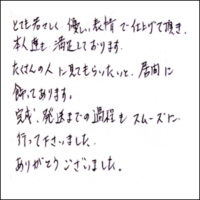 とても若々しく優しい表情で仕上げて頂き、
本人達も満足しております。
たくさんの人に見てもらいたいと、居間に
飾ってあります。
完成、発送までの過程もスムーズに
行って下さいました。
ありがとうございました。